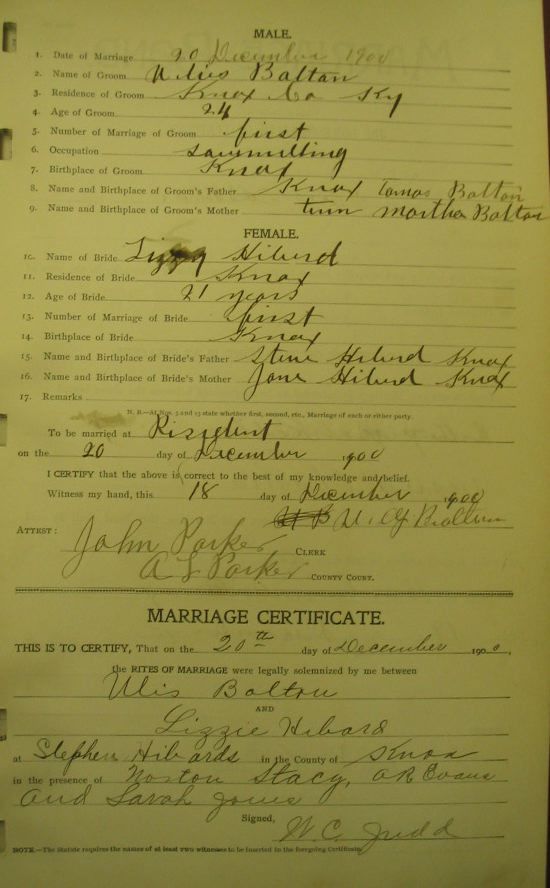 MALE.
1. Date of Marriage 20 December 1900
2. Name of Groom Ulies Boltan
3. Residence of Groom Knox Co Ky
4. Age of Groom 24
5. Number of Marriage of Groom first
6. Occupation sawmilling
7. Birthplace of Groom Knox
8. Name and Birthplace of Groom's Father Knox Tomas Bolton
9. Name and Birthplace of Groom's Mother Martha Bolton
FEMALE.
10. Name of Bride Lizzy Hiberd
11. Residence of Bride Knox
12. Age of Bride 21 years
13. Number of Marriage of Bride first
14. Birthplace of Bride Knox
15. Name and Birthplace of Bride's Father Stene Hiberd Knox
16. Name and Birthplace of Bride's Mother Jane Hiberd Knox
17. Remarks
N. B.—At Nos. 5 and 13 state whether first, second, etc., Marriage of each or either party.
To be married at Risident
on the 20 day of December 1900
I CERTIFY that the above is correct to the best of my knowledge and belief.
Witness my hand, this 18 day of December 1900
ATTEST: John Parker CLERK
A L Parker COUNTY COURT.
MARRIAGE CERTIFICATE.
THIS IS TO CERTIFY, That on the 20th day of December 1900,
the RITES OF MARRIAGE were legally solemnized by me between
Ulis Bolton
AND
Lizzie Hibard
at Stephen Hibards in the County of Knox
in the presence of Noston Stacy, OR Evans
and Sarah Jones
Signed,
W. C. Judd
NOTE.—The Statute requires the names of at least two witnesses to be inserted in the foregoing Certificate.